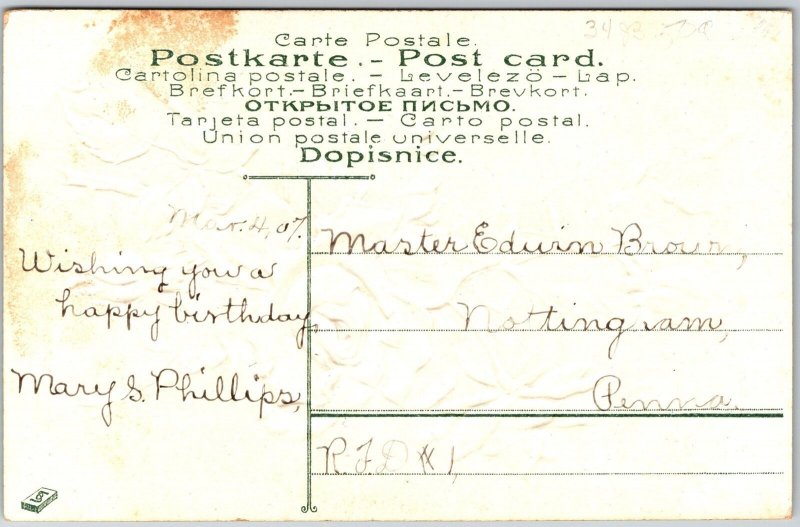 Carte Postale.
Postkarte. - Post card.
Cartolina postale. - Levelezö - Lap.
Brefkort. - Briefkaart. - Brevkort.
ОТКРЫТОЕ ПИСЬМО.
Tarjeta postal. - Carto postal.
Union postale universelle.
Dopisnice.
Mar. 4, 07.
Wishing you a
happy birthday,
Mary S. Phillips,
Master Edwin Brown,
Nottingram,
Penna.
R.F.D #1,